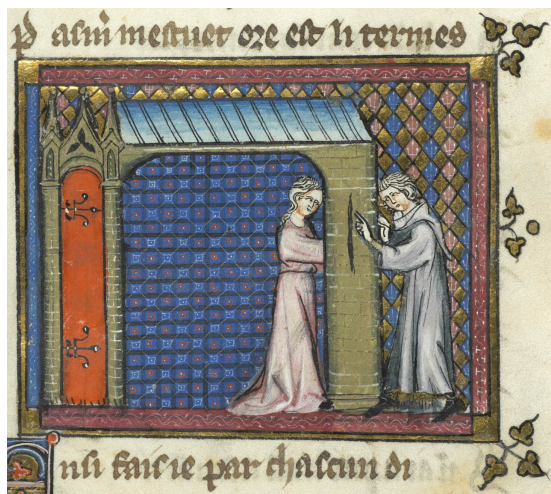 P asm̃ mestuet ore est li termes
nsi fais ie par chascun di